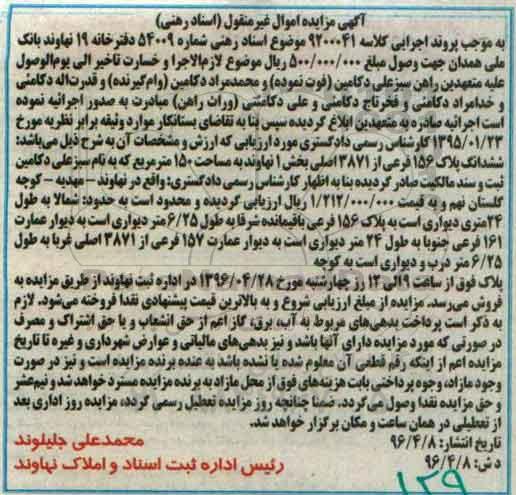 آگهی مزایده اموال غیرمنقول (اسناد رهنی)
به موجب پروند اجرایی کلاسه ۹۲۰۰۰۴۱ موضوع اسناد رهنی شماره ۵۴۰۰۹ دفترخانه ۱۹ نهاوند بانک
ملی همدان جهت وصول مبلغ ۵۰۰/۰۰۰/۰۰۰ ریال موضوع لازم‌الاجرا و خسارت تاخیر الی یوم‌الوصول
علیه متعهدین راهن سبزعلی دکامین (فوت نموده) و محمدمراد دکامین (وام‌گیرنده) و قدرت‌اله دکامئی
و خدامراد دکامئی و فخرتاج دکامئی و علی دکامئئی (وراث راهن) مبادرت به صدور اجرائیه نموده
است اجرائیه صادره به متعهدین ابلاغ گردیده سپس بنا به تقاضای بستانکار موارد وثیقه برابر نظریه مورخ
۱۳۹۵/۰۱/۲۳ کارشناس رسمی دادگستری مورد ارزیابی که ارزش و مشخصات آن به شرح ذیل می‌باشد:
ششدانگ پلاک ۱۵۶ فرعی از ۳۸۷۱ اصلی بخش ۱ نهاوند به مساحت ۱۵۰ مترمربع که به نام سبزعلی دکامین
ثبت و سند مالکیت صادر گردیده بنا به اظهار کارشناس رسمی دادگستری: واقع در نهاوند - مهدیه - کوچه
گلستان نهم و به قیمت ۱/۲۱۲/۰۰۰/۰۰۰ ریال ارزیابی گردیده و محدود است به حدود: شمالا به طول
۲۴متری دیواری است به پلاک ۱۵۶ فرعی باقیمانده شرقا به طول ۶/۲۵ متر دیواری است به دیوار عمارت
۱۶۱ فرعی جنوبا به طول ۲۴ متر دیواری است به دیوار عمارت ۱۵۷ فرعی از ۳۸۷۱ اصلی غربا به طول
۶/۲۵ متر درب و دیواری است به کوچه
پلاک فوق از ساعت ۹ الی ۱۲ رز چهارشنبه مورخ ۱۳۹۶/۰۴/۲۸ در اداره ثبت نهاوند از طریق مزایده به
فروش می‌رسد. مزایده از مبلغ ارزیابی شروع و به بالاترین قیمت پیشنهادی نقدا فروخته می‌شود. لازم
به ذکر است پرداخت بدهی‌های مربوط به آب، برق، گاز اعم از حق انشعاب و یا حق اشتراک و مصرف
در صورتی که مورد مزایده دارای آنها باشد و نیز بدهی‌های مالیاتی و عوارض شهرداری و غیره تا تاریخ
مزایده اعم از اینکه رقم قطعی آن معلوم شده یا نشده باشد به عنده برنده مزایده است و نیز در صورت
وجود مازاد، وجوه پرداختی بابت هزینه‌های فوق از محل مازاد به برنده مزایده مسترد خواهد شد و نیم‌عشر
و حق مزایده نقدا وصول می‌گردد. ضمنا چنانچه روز مزایده تعطیل رسمی گردد، مزایده روز اداری بعد
از تعطیلی در همان ساعت و مکان برگزار خواهد شد.
تاریخ انتشار: ۹۶/۴/۸
د ش: ۹۶/۴/۸
محمدعلی جلیلوند
رئیس اداره ثبت اسناد و املاک نهاوند
۱۲۹